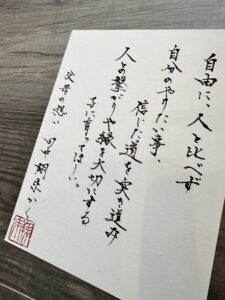 自由に、人と比べず
自分のやりたい事、
信じた道を突き進み
人との繋がりや縁を大切にする
子に育ってほしい。
父母の想い